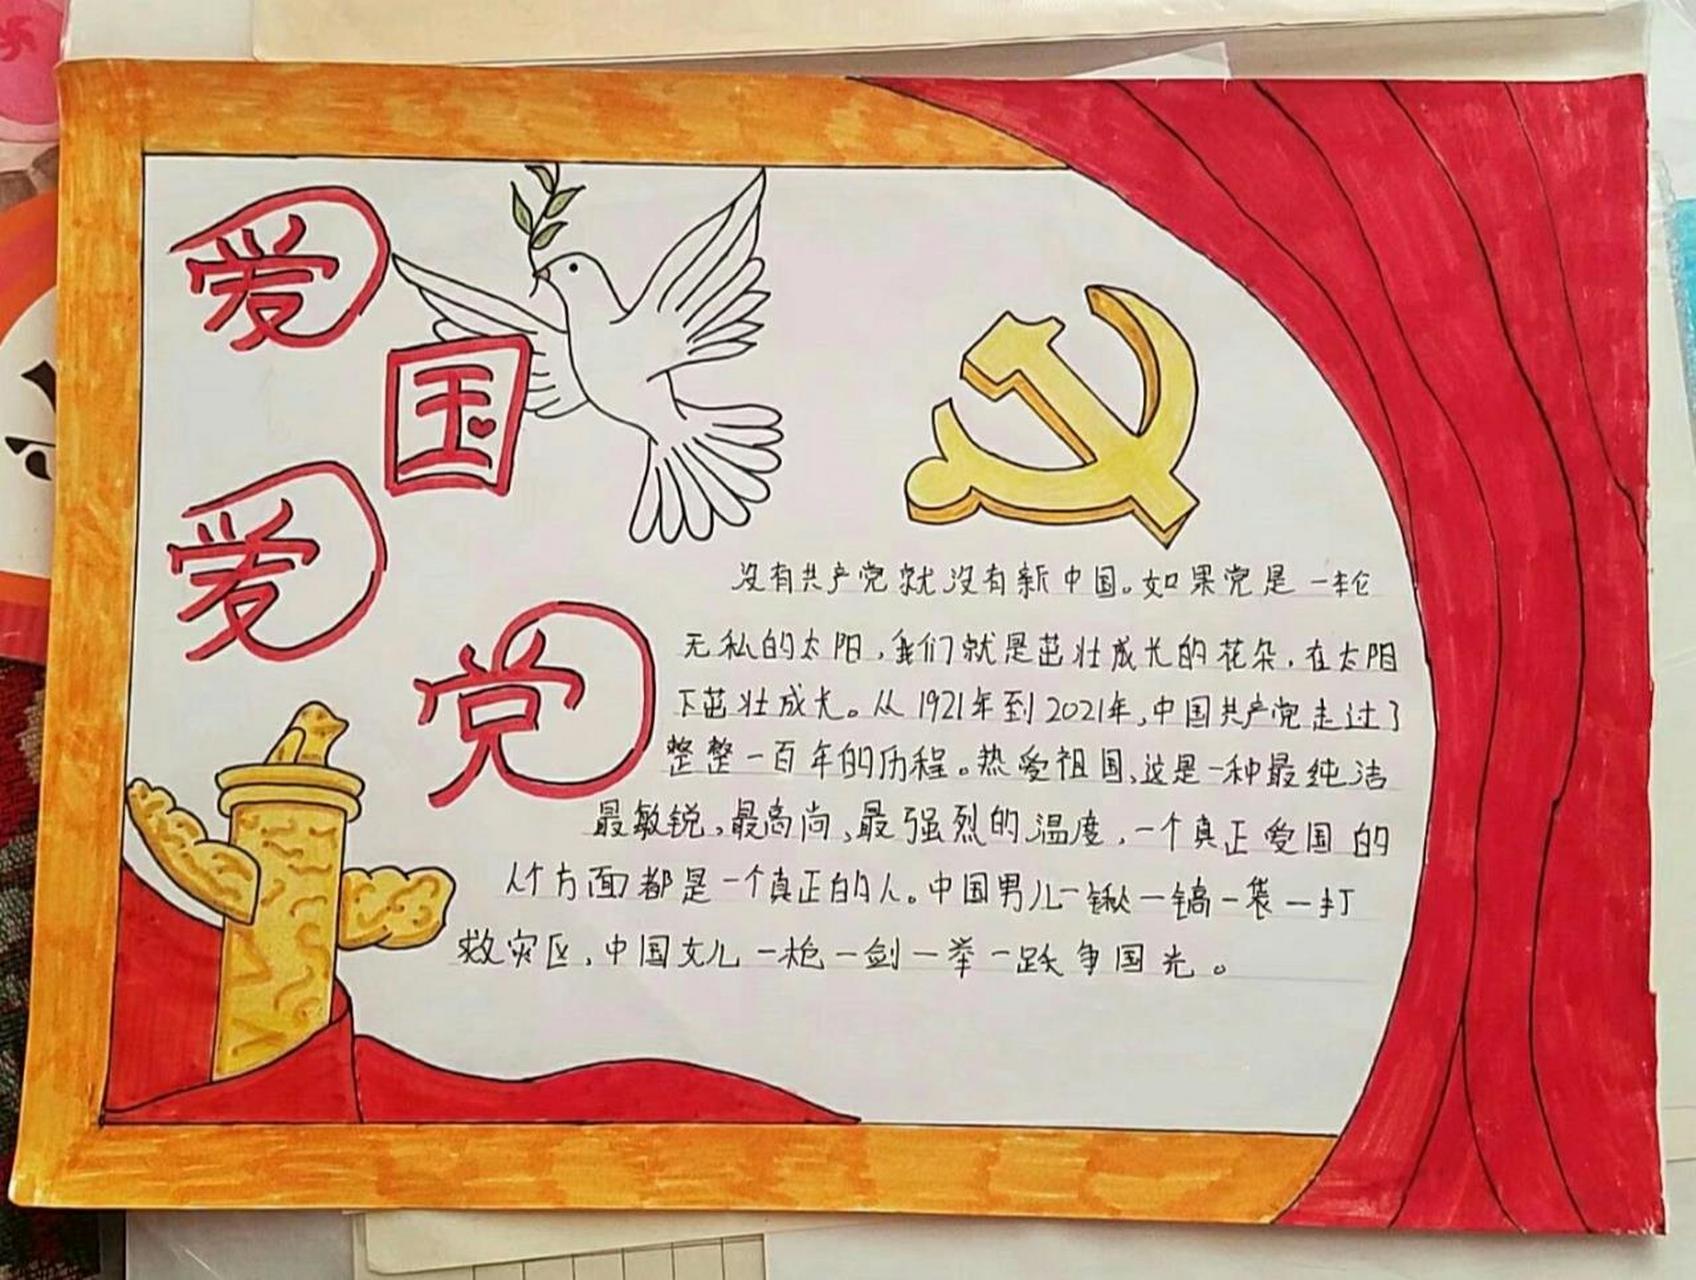 爱
国
爱
党
没有共产党就没有新中国。如果党是一轮
无私的太阳，我们就是茁壮成长的花朵，在太阳
下茁壮成长。从1921年到2021年，中国共产党走过了
整整一百年的历程。热爱祖国，这是一种最纯洁
最敏锐，最高尚，最强烈的温度，一个真正爱国的
人个方面都是一个真正的人。中国男儿一锹一镐一袋一打
救灾区，中国女儿一枪一剑一举一跃争国光。